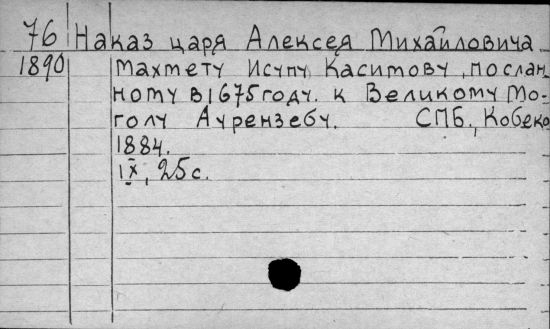 76 Наказ царя Алексея Михайловича
1890 Махмету Исупу Касимову, послан
ному в 1675 году. к Великому Мо-
голу Аурензебу. СПБ., Кобеко
1884.
IX, 25 с.